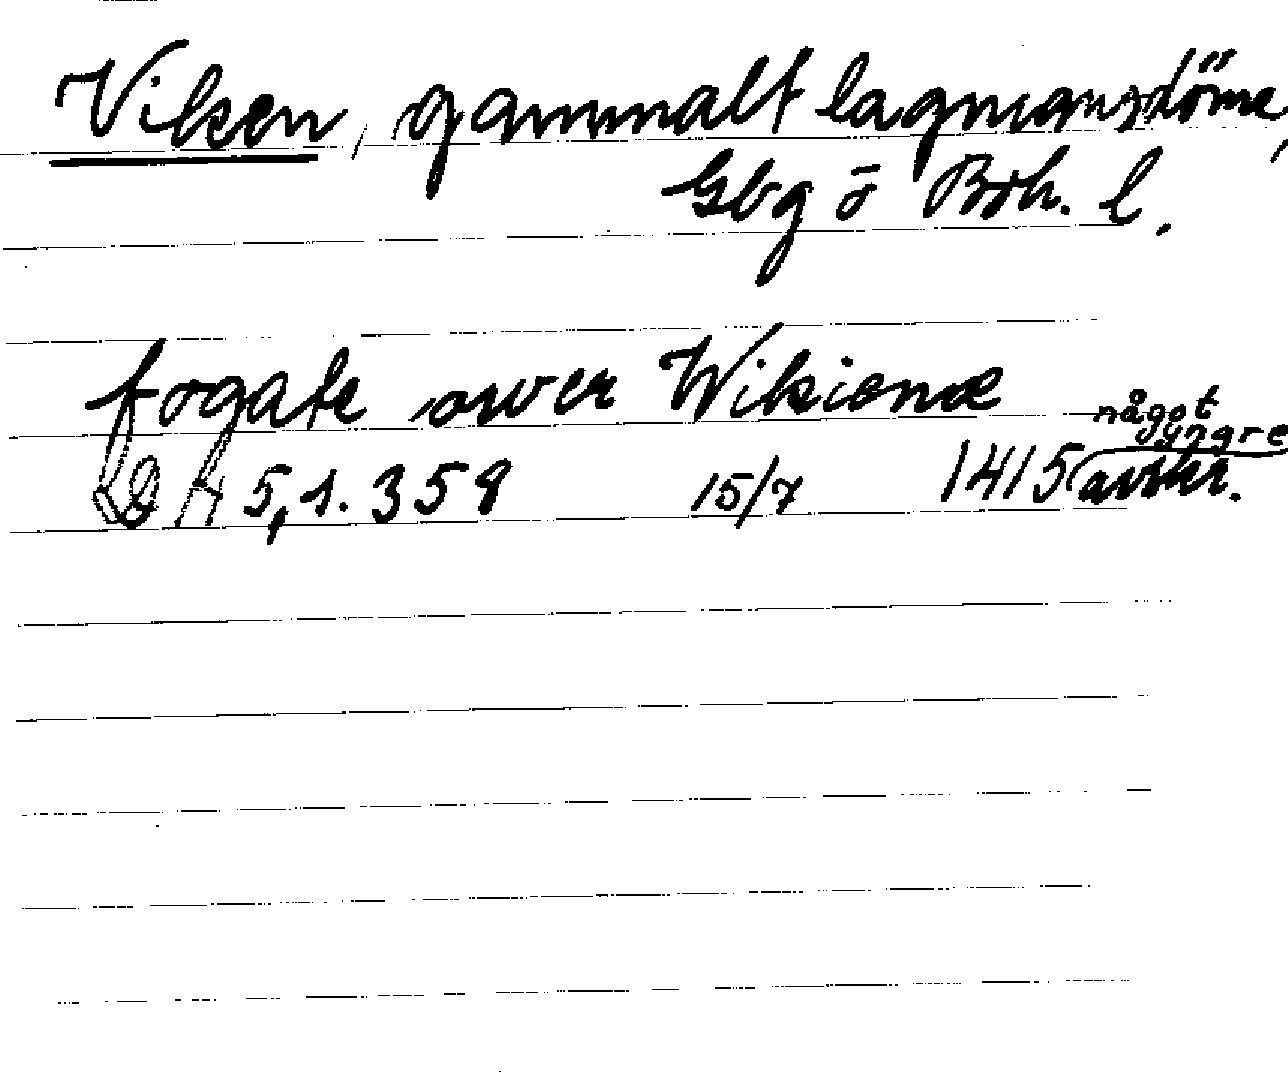 Viken, gammalt lagmansdöme,
Gbg o Boh. l.
fogate owver Wikienæ
något
yngre
RA 5,1. 358 15/7 1415 avskr.